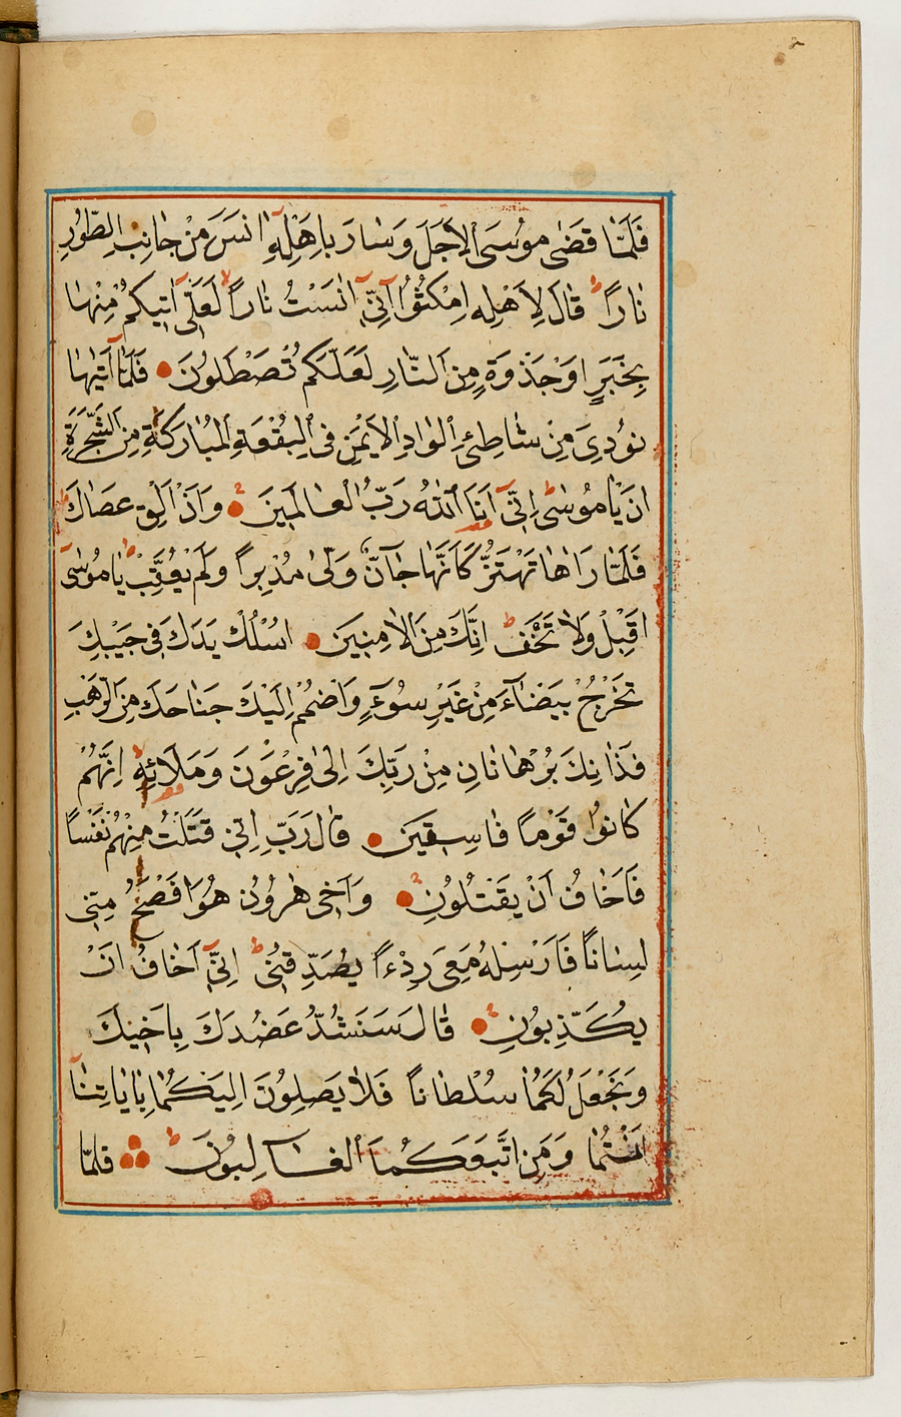 فَلَمَّا قَضٰى مُوسَى الْاَجَلَ وَسَارَ بِاَهْلِهٖٓ اٰنَسَ مِنْ جَانِبِ الطُّورِ
نَارًا ۚ قَالَ لِاَهْلِهِ امْكُثُٓوا اِنّٖٓى اٰنَسْتُ نَارًا لَعَلّٖٓى اٰتٖيكُمْ مِنْهَا
بِخَبَرٍ اَوْ جَذْوَةٍ مِنَ النَّارِ لَعَلَّكُمْ تَصْطَلُونَ فَلَمَّٓا اَتٰيهَا
نُودِىَ مِنْ شَاطِئِ الْوَادِ الْاَيْمَنِ فِى الْبُقْعَةِ الْمُبَارَكَةِ مِنَ الشَّجَرَةِ
اَنْ يَا مُوسٰٓى اِنّٖٓى اَنَا اللّٰهُ رَبُّ الْعَالَمٖينَ وَاَنْ اَلْقِ عَصَاكَ ۜ
فَلَمَّا رَاٰهَا تَهْتَزُّ كَاَنَّهَا جَٓانٌّ وَلّٰى مُدْبِرًا وَلَمْ يُعَقِّبْ ۜ يَا مُوسٰٓى
اَقْبِلْ وَلَا تَخَفْ ۜ اِنَّكَ مِنَ الْاٰمِنٖينَ اُسْلُكْ يَدَكَ فٖى جَيْبِكَ
تَخْرُجْ بَيْضَٓاءَ مِنْ غَيْرِ سُٓوءٍ وَاضْمُمْ اِلَيْكَ جَنَاحَكَ مِنَ الرَّهْبِ
فَذَانِكَ بُرْهَانَانِ مِنْ رَبِّكَ اِلٰى فِرْعَوْنَ وَمَلَائِهٖ ۜ اِنَّهُمْ
كَانُوا قَوْمًا فَاسِقٖينَ قَالَ رَبِّ اِنّٖى قَتَلْتُ مِنْهُمْ نَفْسًا
فَاَخَافُ اَنْ يَقْتُلُونِ وَاَخٖى هٰرُونُ هُوَ اَفْصَحُ مِنّٖى
لِسَانًا فَاَرْسِلْهُ مَعِىَ رِدْءًا يُصَدِّقُنٖٓى ۜ اِنّٖٓى اَخَافُ اَنْ
يُكَذِّبُونِ قَالَ سَنَشُدُّ عَضُدَكَ بِاَخٖيكَ
وَنَجْعَلُ لَكُمَا سُلْطَانًا فَلَا يَصِلُونَ اِلَيْكُمَا بِاٰيَاتِنَٓا
اَنْتُمَا وَمَنِ اتَّبَعَكُمَا الْغَالِبُونَ ۜ فَلَمَّا